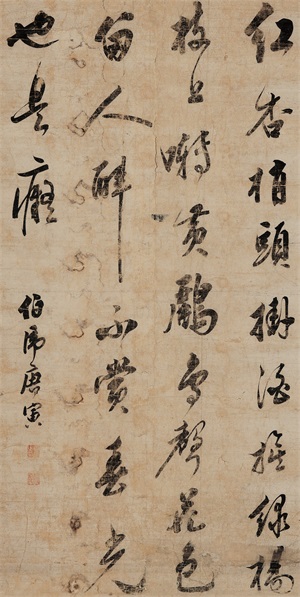 紅杏梢頭掛酒旗綠楊
枝上囀黃鸝鳥聲花色
留人醉不賞春光
也是癡
伯虎唐寅